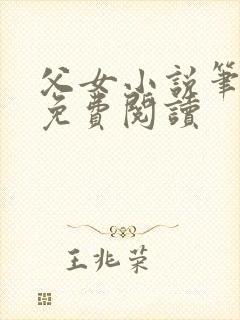 父女小説筆
免費閱讀
王兆荣